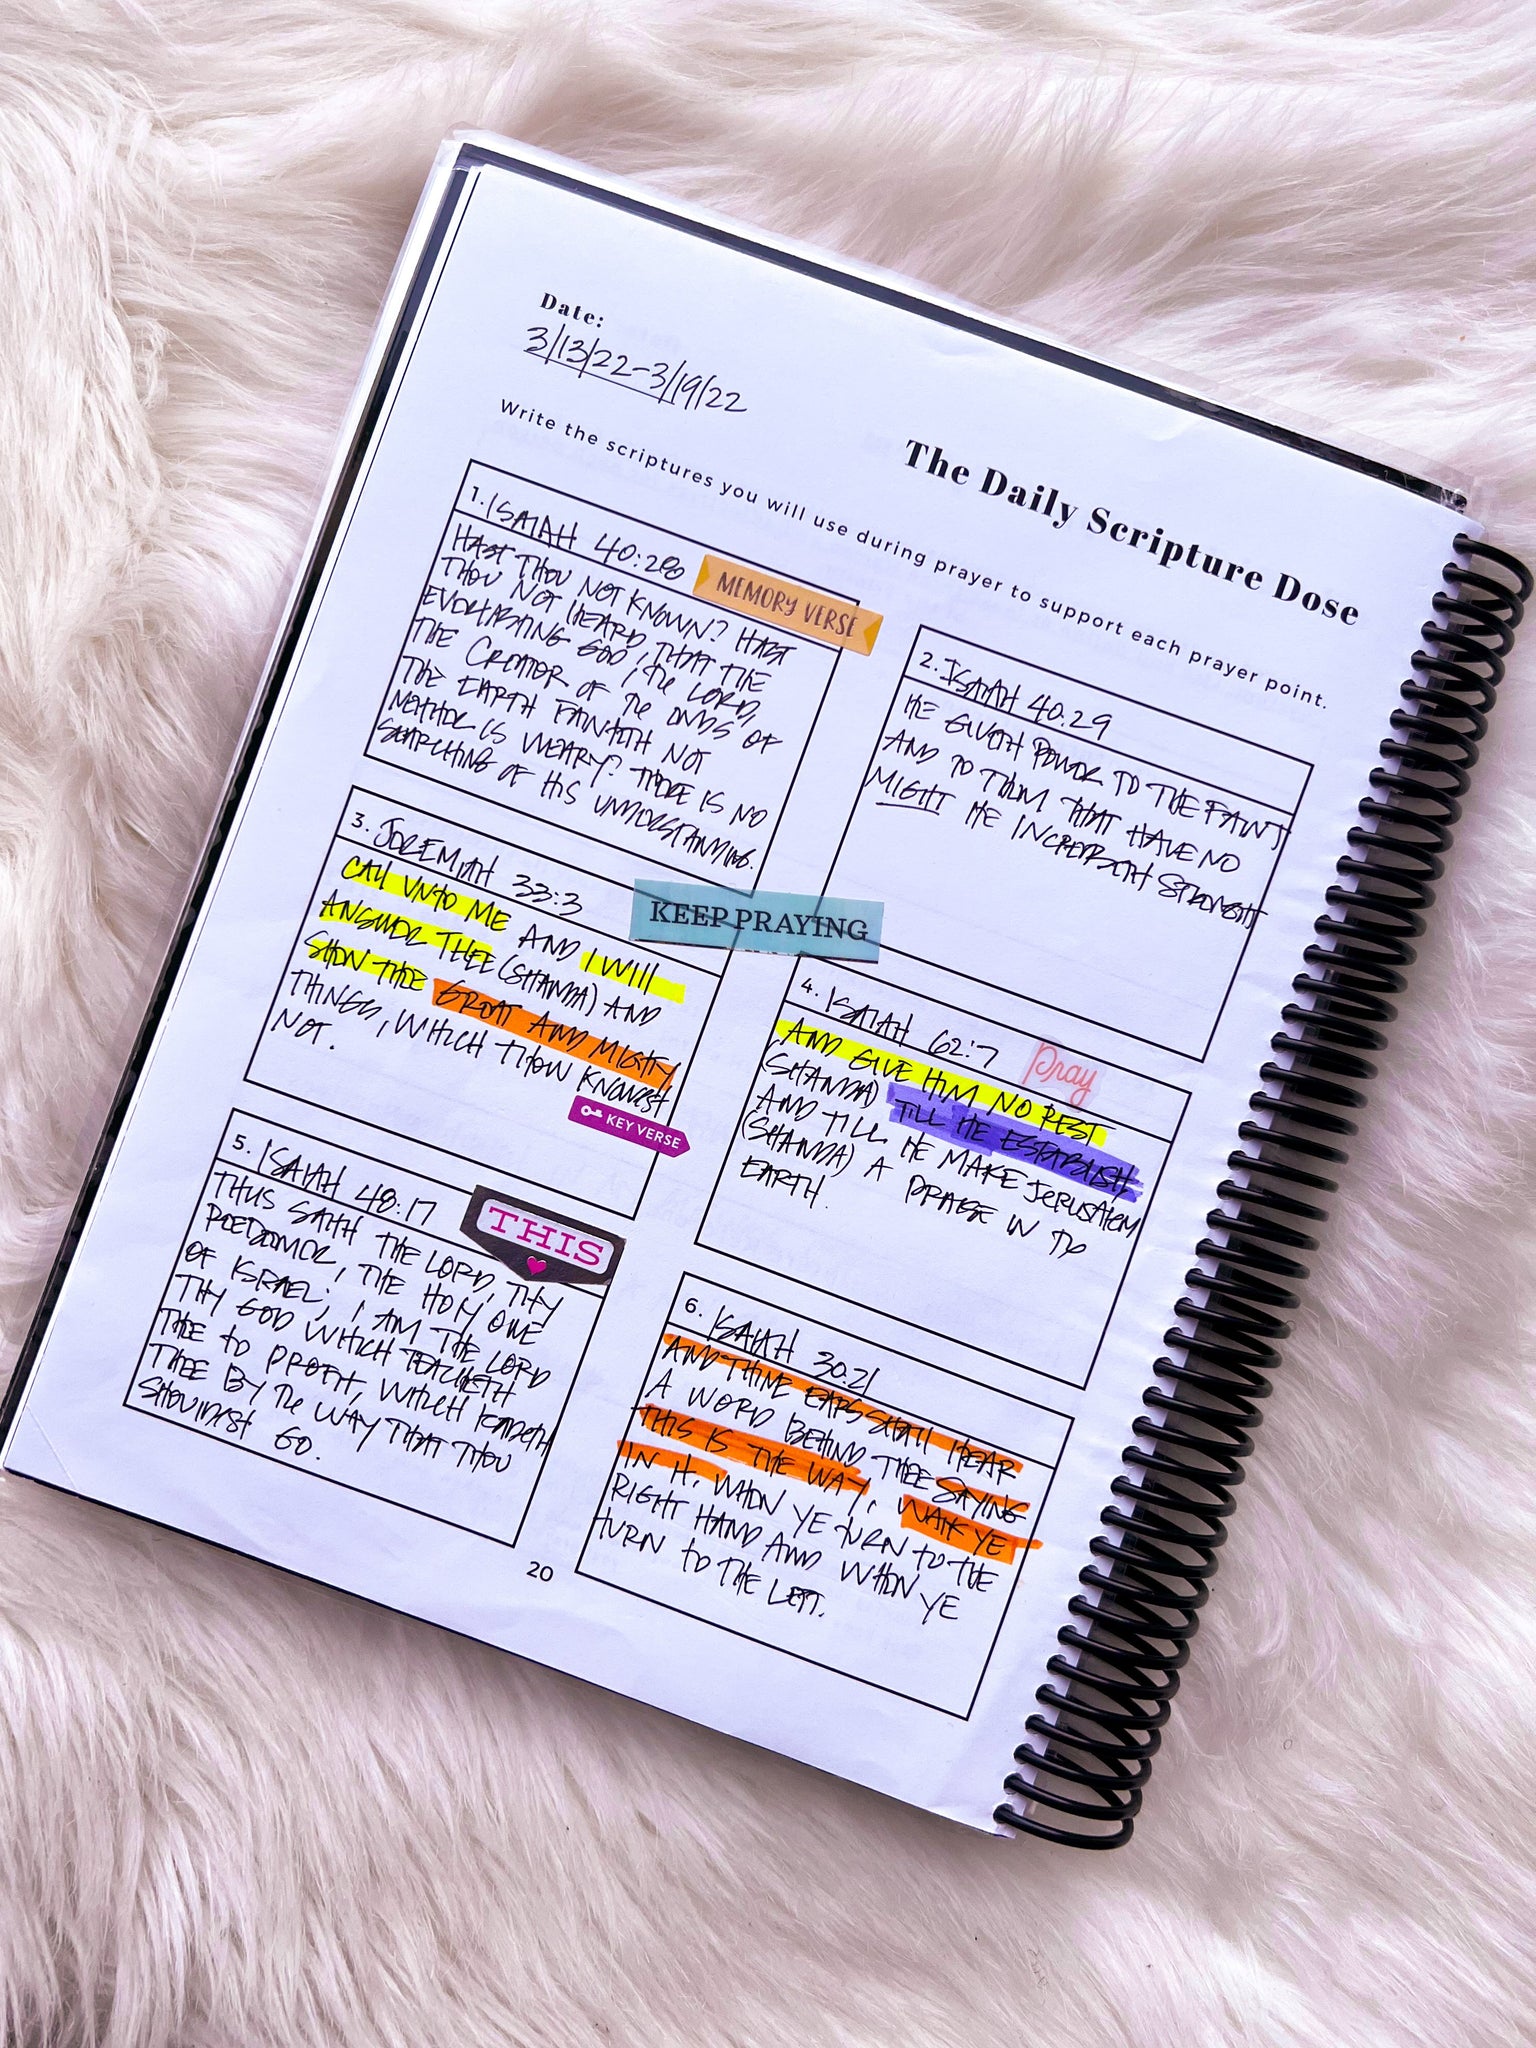 Date:
3/13/22-3/19/22
The Daily Scripture Dose
Write the scriptures you will use during prayer to support each prayer point.
1. ISAIAH 40:28
MEMORY VERSE
HAST THOU NOT KNOWN? HAST
THOU NOT HEARD, THAT THE
EVERLASTING GOD, THE LORD,
THE CREATOR OF THE ENDS OF
THE EARTH FAINTETH NOT
NEITHER IS WEARY? THERE IS NO
SEARCHING OF HIS UNDERSTANDING.
2. ISAIAH 40:29
HE GIVETH POWER TO THE FAINT
AND TO THEM THAT HAVE NO
MIGHT HE INCREASETH STRENGTH
3. JEREMIAH 33:3
KEEP PRAYING
CALL UNTO ME AND I WILL
ANSWER THEE (SHANDA) AND
SHOW THEE GREAT AND MIGHTY
THINGS, WHICH THOU KNOWEST
NOT.
KEY VERSE
4. ISAIAH 62:7
Pray
AND GIVE HIM NO REST
(SHANDA) TILL HE ESTABLISH,
AND TILL HE MAKE JERUSALEM
(SHANDA) A PRAISE IN THE
EARTH.
5. ISAIAH 48:17
THIS
THUS SAITH THE LORD, THY
REDEEMER, THE HOLY ONE
OF ISRAEL; I AM THE LORD
THY GOD WHICH TEACHETH
THEE TO PROFIT, WHICH LEADETH
THEE BY THE WAY THAT THOU
SHOULDEST GO.
6. ISAIAH 30:21
AND THINE EARS SHALL HEAR
A WORD BEHIND THEE SAYING
THIS IS THE WAY, WALK YE
IN IT, WHEN YE TURN TO THE
RIGHT HAND AND WHEN YE
TURN TO THE LEFT.
20